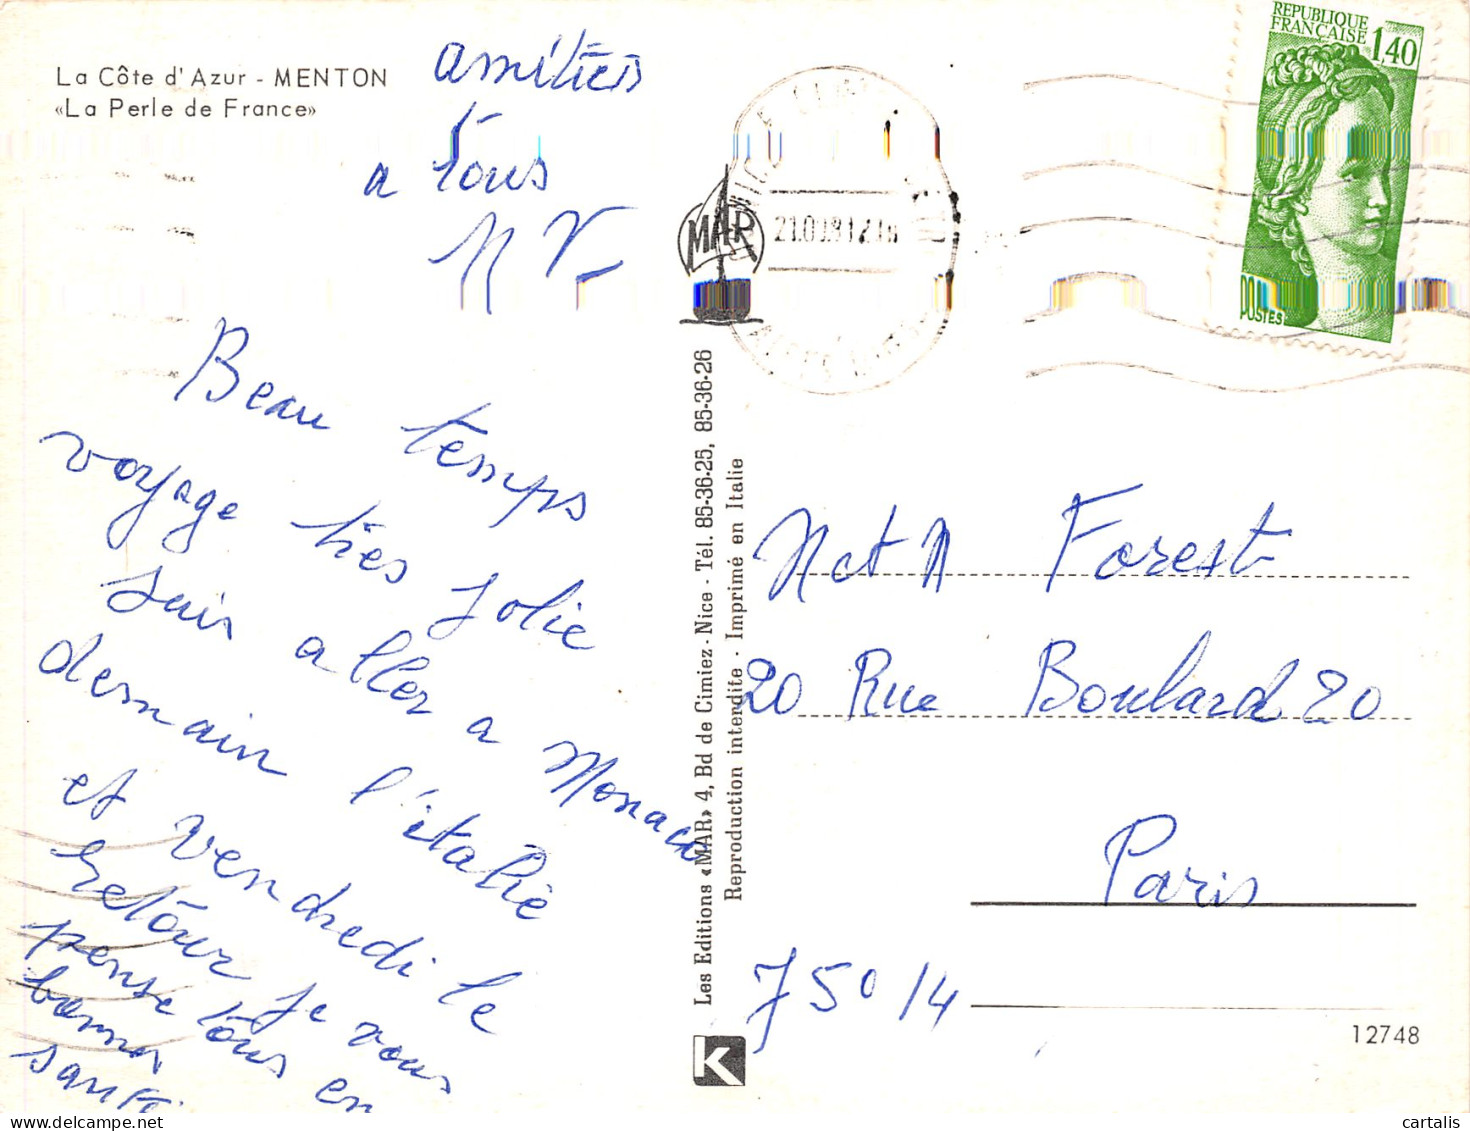 La Côte d'Azur - MENTON
«La Perle de France»
amitiés
a tous
Beau temps
voyage tres Jolie
suis aller a Monaco
demain l'italie
et vendredi le
retour Je vous
pense tous en
bonnes
santé.
MAR
Les Editions «MAR» 4, Bd de Cimiez - Nice - Tél. 85-36-25, 85-36-26
Reproduction interdite - Imprimé en Italie
K
REPUBLIQUE
FRANÇAISE
1,40
POSTES
Forest
20 Rue Boulard 20
Paris
75014
12748
cartalis